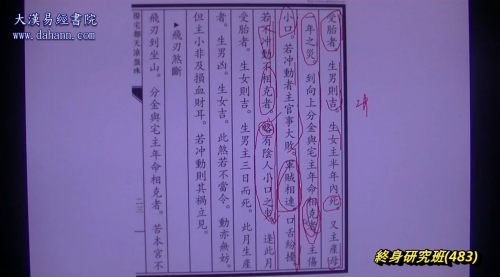 大漢易經書院
www.dahann.com
陽宅都天滾盤珠
二三
受胎者。生男則吉。生女主半年內死。又主產母
一年之災。到向上分金與宅主年命相克者。主傷
小口。若冲動者主官事大敗。軍賊相連。口舌紛擾。
若不冲動不相克者。略有陰人小口之
受胎者。生女則吉。生男主三日而死。此月生產
者。生男凶。生女吉。此然若不當令。動亦無妨。
但主小非及損血財耳。若冲動則其禍立見。
飛刃煞斷
飛刃到坐山。分金與宅主年命相克者。若本宮不
終身研究班(483)